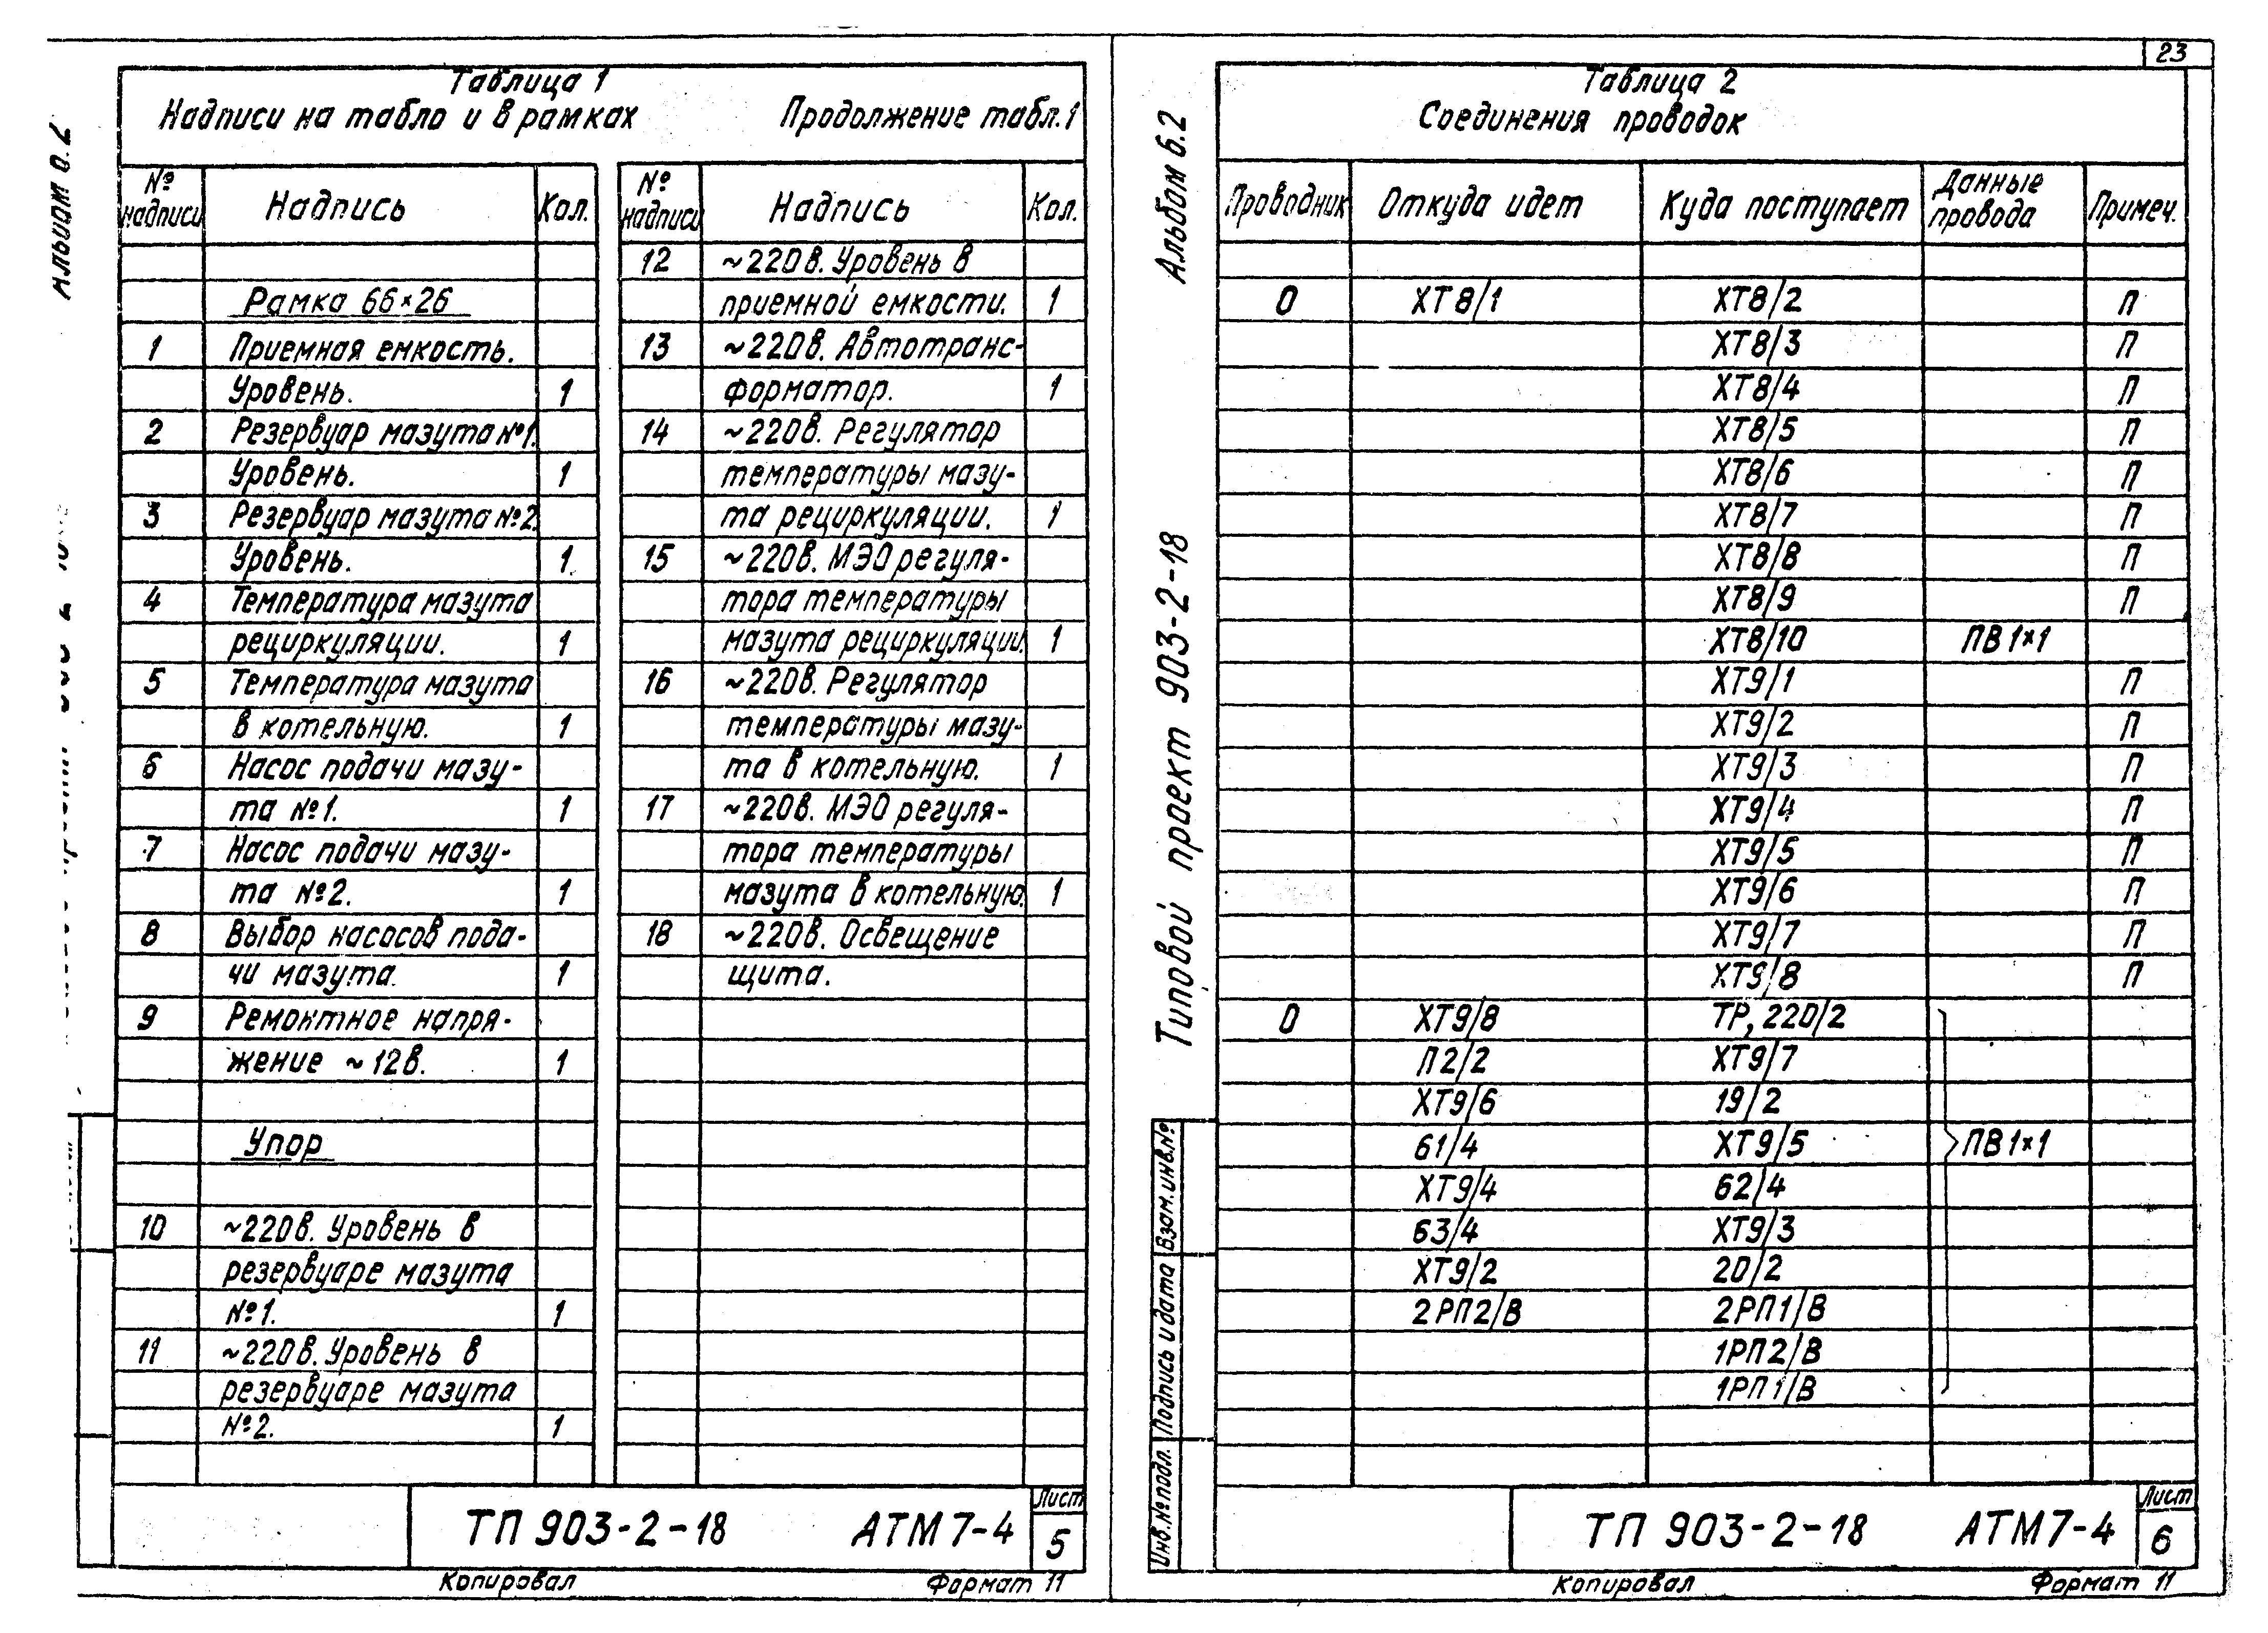 23
Альбом 6.2
Таблица 1
Надписи на табло и в рамках
Продолжение табл.1
№ надписи Надпись Кол.
Рамка 66×26
1 Приемная емкость.
Уровень. 1
2 Резервуар мазута №1.
Уровень. 1
3 Резервуар мазута №2.
Уровень. 1
4 Температура мазута
рециркуляции. 1
5 Температура мазута
в котельную. 1
6 Насос подачи мазу-
та №1. 1
7 Насос подачи мазу-
та №2. 1
8 Выбор насосов пода-
чи мазута. 1
9 Ремонтное напря-
жение ~12в. 1
Упор
10 ~220в. Уровень в
резервуаре мазута
№1. 1
11 ~220в. Уровень в
резервуаре мазута
№2. 1
№ надписи Надпись Кол.
12 ~220в. Уровень в
приемной емкости. 1
13 ~220в. Автотранс-
форматор. 1
14 ~220в. Регулятор
температуры мазу-
та рециркуляции. 1
15 ~220в. МЭО регуля-
тора температуры
мазута рециркуляции. 1
16 ~220в. Регулятор
температуры мазу-
та в котельную. 1
17 ~220в. МЭО регуля-
тора температуры
мазута в котельную. 1
18 ~220в. Освещение
щита.
ТП 903-2-18 АТМ7-4
Лист
5
Копировал Формат 11
Альбом 6.2
Типовой проект 903-2-18
Взам.инв.№
Подпись и дата
Инв.№подл.
Таблица 2
Соединения проводок
Проводник Откуда идет Куда поступает Данные провода Примеч.
0 ХТ8/1 ХТ8/2 П
ХТ8/3 П
ХТ8/4 П
ХТ8/5 П
ХТ8/6 П
ХТ8/7 П
ХТ8/8 П
ХТ8/9 П
ХТ8/10 ПВ1×1
ХТ9/1 П
ХТ9/2 П
ХТ9/3 П
ХТ9/4 П
ХТ9/5 П
ХТ9/6 П
ХТ9/7 П
ХТ9/8 П
0 ХТ9/8 ТР, 220/2
П2/2 ХТ9/7
ХТ9/6 19/2
61/4 ХТ9/5 ПВ1×1
ХТ9/4 62/4
63/4 ХТ9/3
ХТ9/2 20/2
2РП2/В 2РП1/В
1РП2/В
1РП1/В
ТП 903-2-18 АТМ7-4
Лист
6
Копировал Формат 11